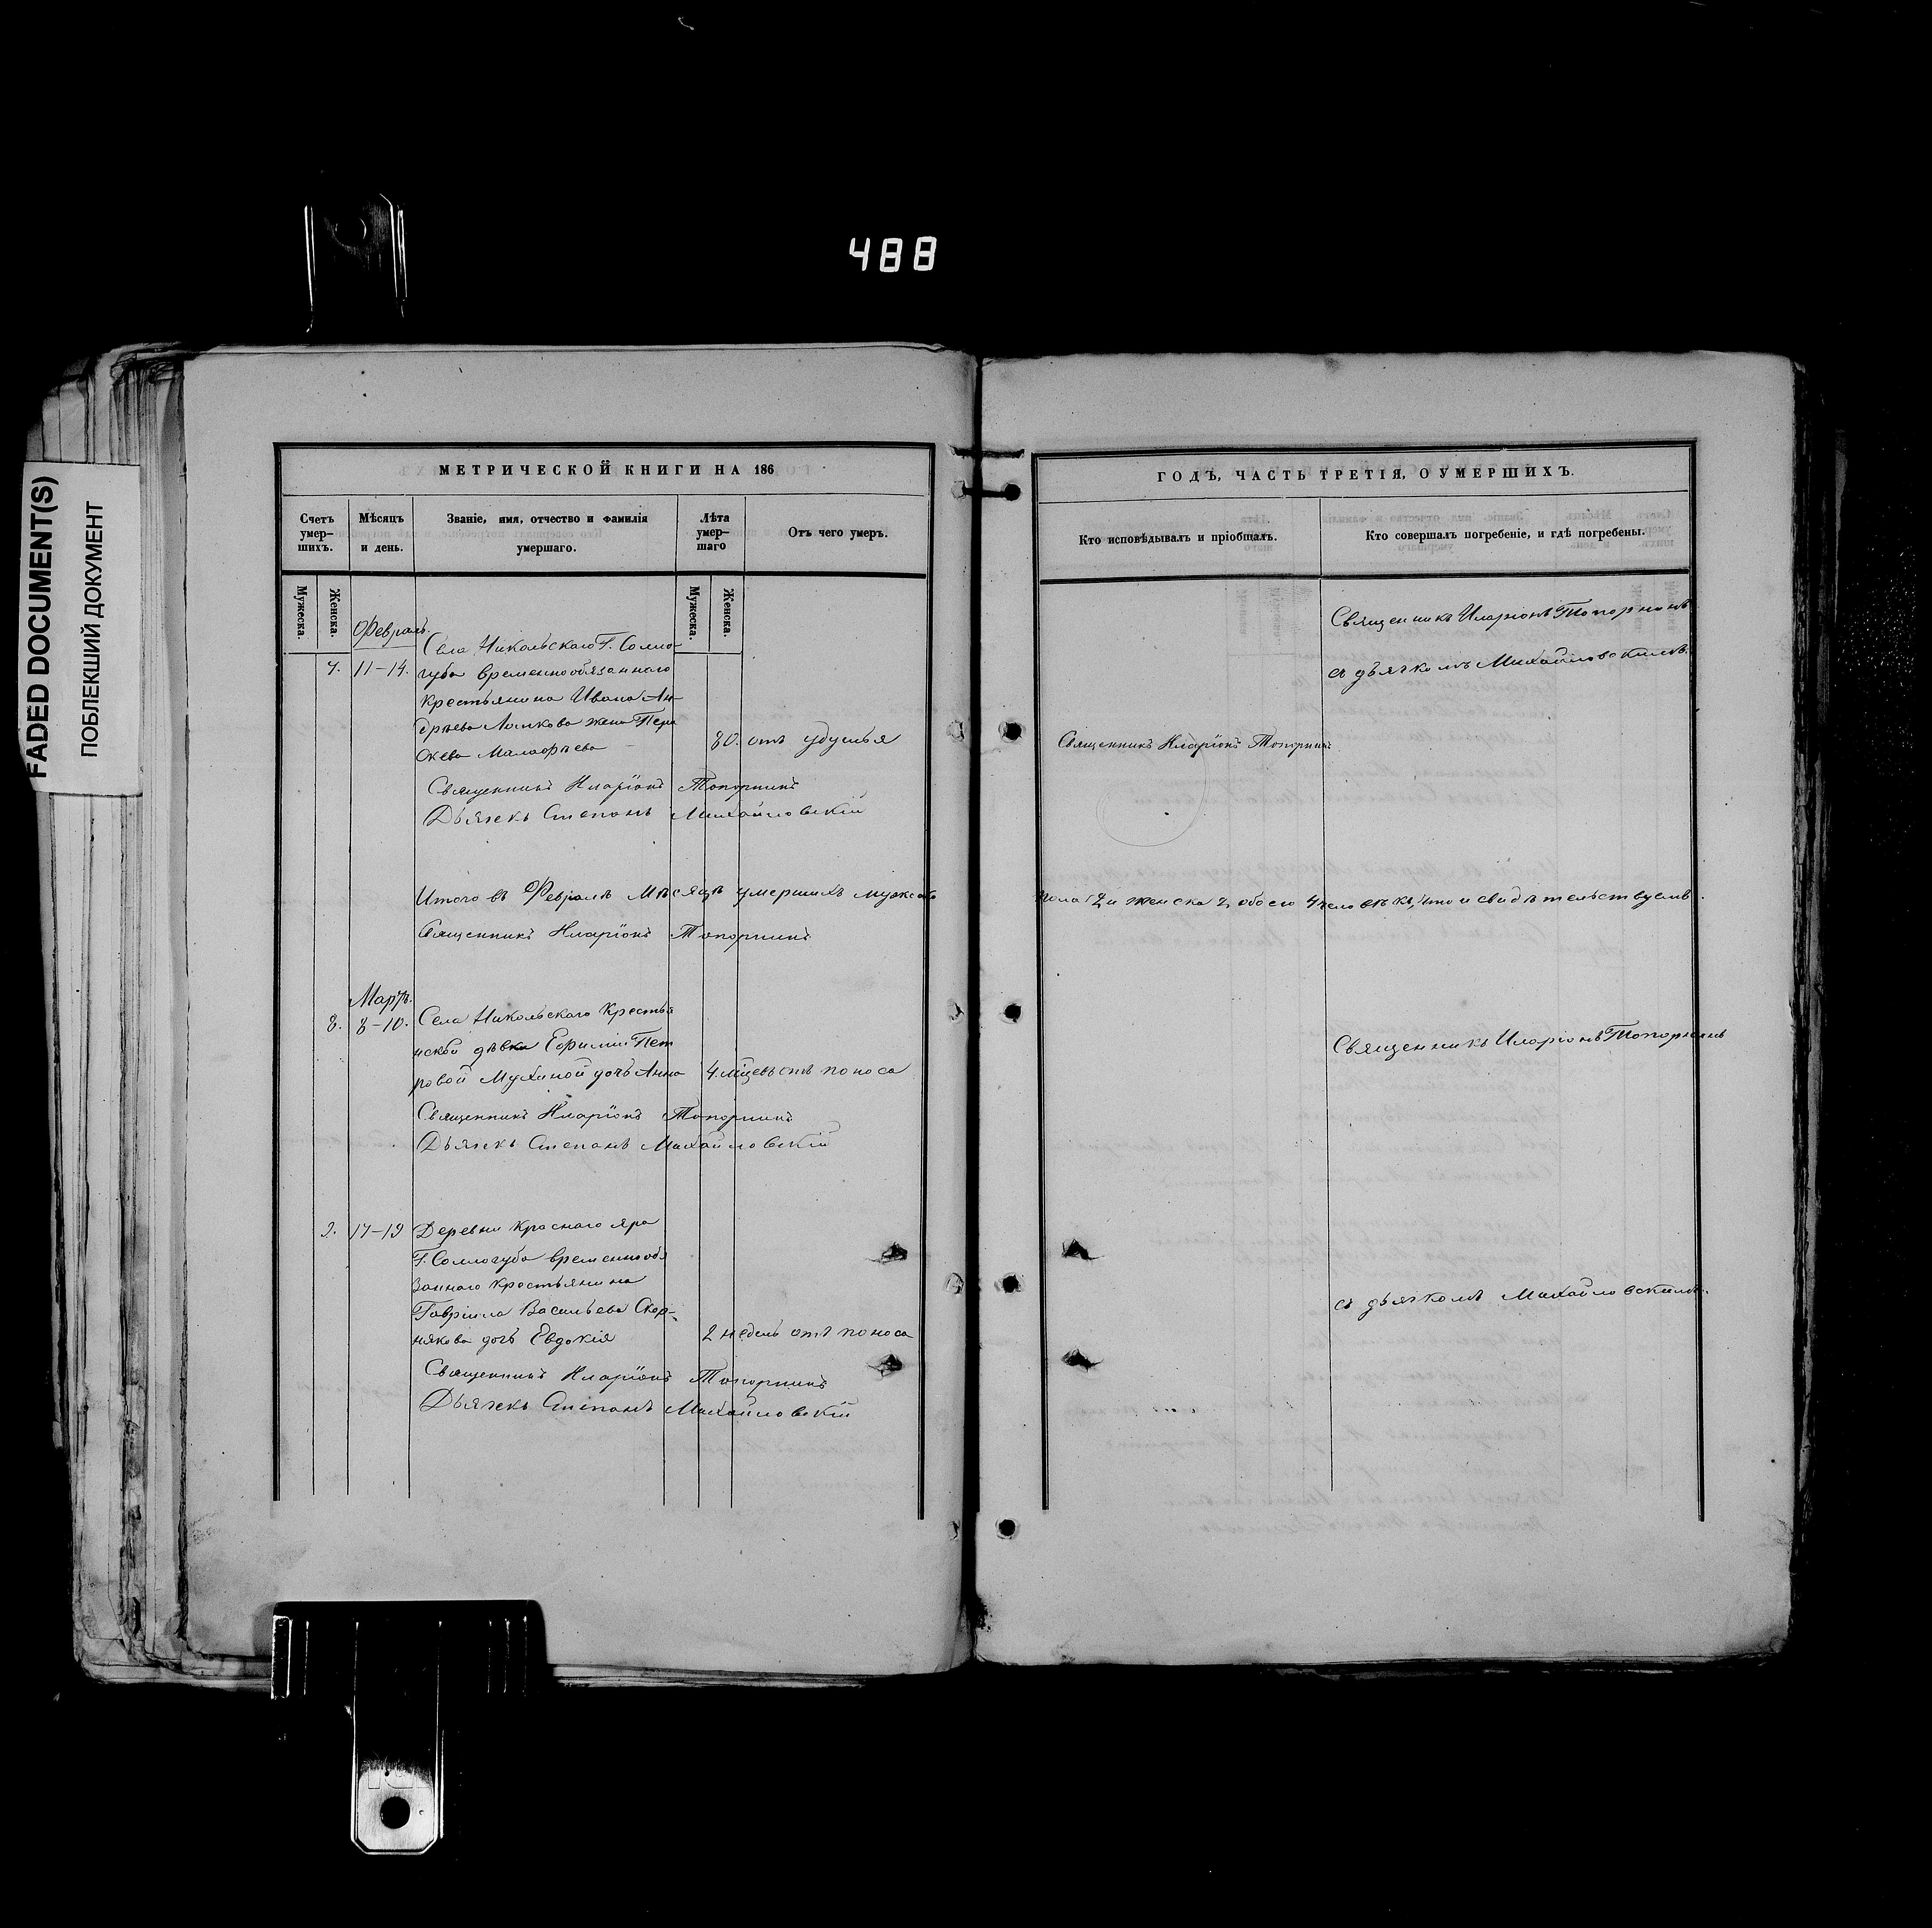 488
FADED DOCUMENT(S)
ПОБЛЕКШИЙ ДОКУМЕНТ
МЕТРИЧЕСКОЙ КНИГИ НА 186
Счетъ умер-шихъ.
Мѣсяцъ и день.
Званіе, имя, отчество и фамилія умершаго.
Лѣта умер-шаго
Отъ чего умеръ.
Мужеска.
Женска.
Мужеска.
Женска.
Февраль.
Села Никольскаго Г. Солло-
7. 11-14. губа временнообязаннаго
крестьянина Ивана Ан-
дрѣева жена Пера
скева Малафѣева 80. отъ удушья
Священникъ Иларіонъ Топорнинъ
Дьячекъ Степанъ Михайловскій
Итого въ Февралѣ мѣсяцѣ умершихъ мужеска
Священникъ Иларіонъ Топорнинъ
Мартъ.
8. 8-10. Села Никольскаго крестья
нской дѣвки Ефиміи Пет
ровой Мухиной дочь Анна 4. мѣсцевъ отъ поноса
Священникъ Иларіонъ Топорнинъ
Дьячекъ Степанъ Михайловскій
9. 17-19 Деревни Краснаго яра
Г. Соллогуба временнообя
заннаго крестьянина
Гавріила Васильева Скор-
някова дочь Евдокія 2 недель отъ поноса
Священникъ Иларіонъ Топорнинъ
Дьячекъ Степанъ Михайловскій
ГОДЪ, ЧАСТЬ ТРЕТІЯ, О УМЕРШИХЪ.
Кто исповѣдывалъ и пріобщалъ.
Кто совершалъ погребеніе, и гдѣ погребены.
Священникъ Иларіонъ Топорнинъ
съ дьячкомъ Михайловскимъ.
Священникъ Иларіонъ Топорнинъ
пола 2 и женска 2 обоего 4 человѣкъ, что и свидѣтельствуемъ.
Священникъ Иларіонъ Топорнинъ
съ дьячкомъ Михайловскимъ.